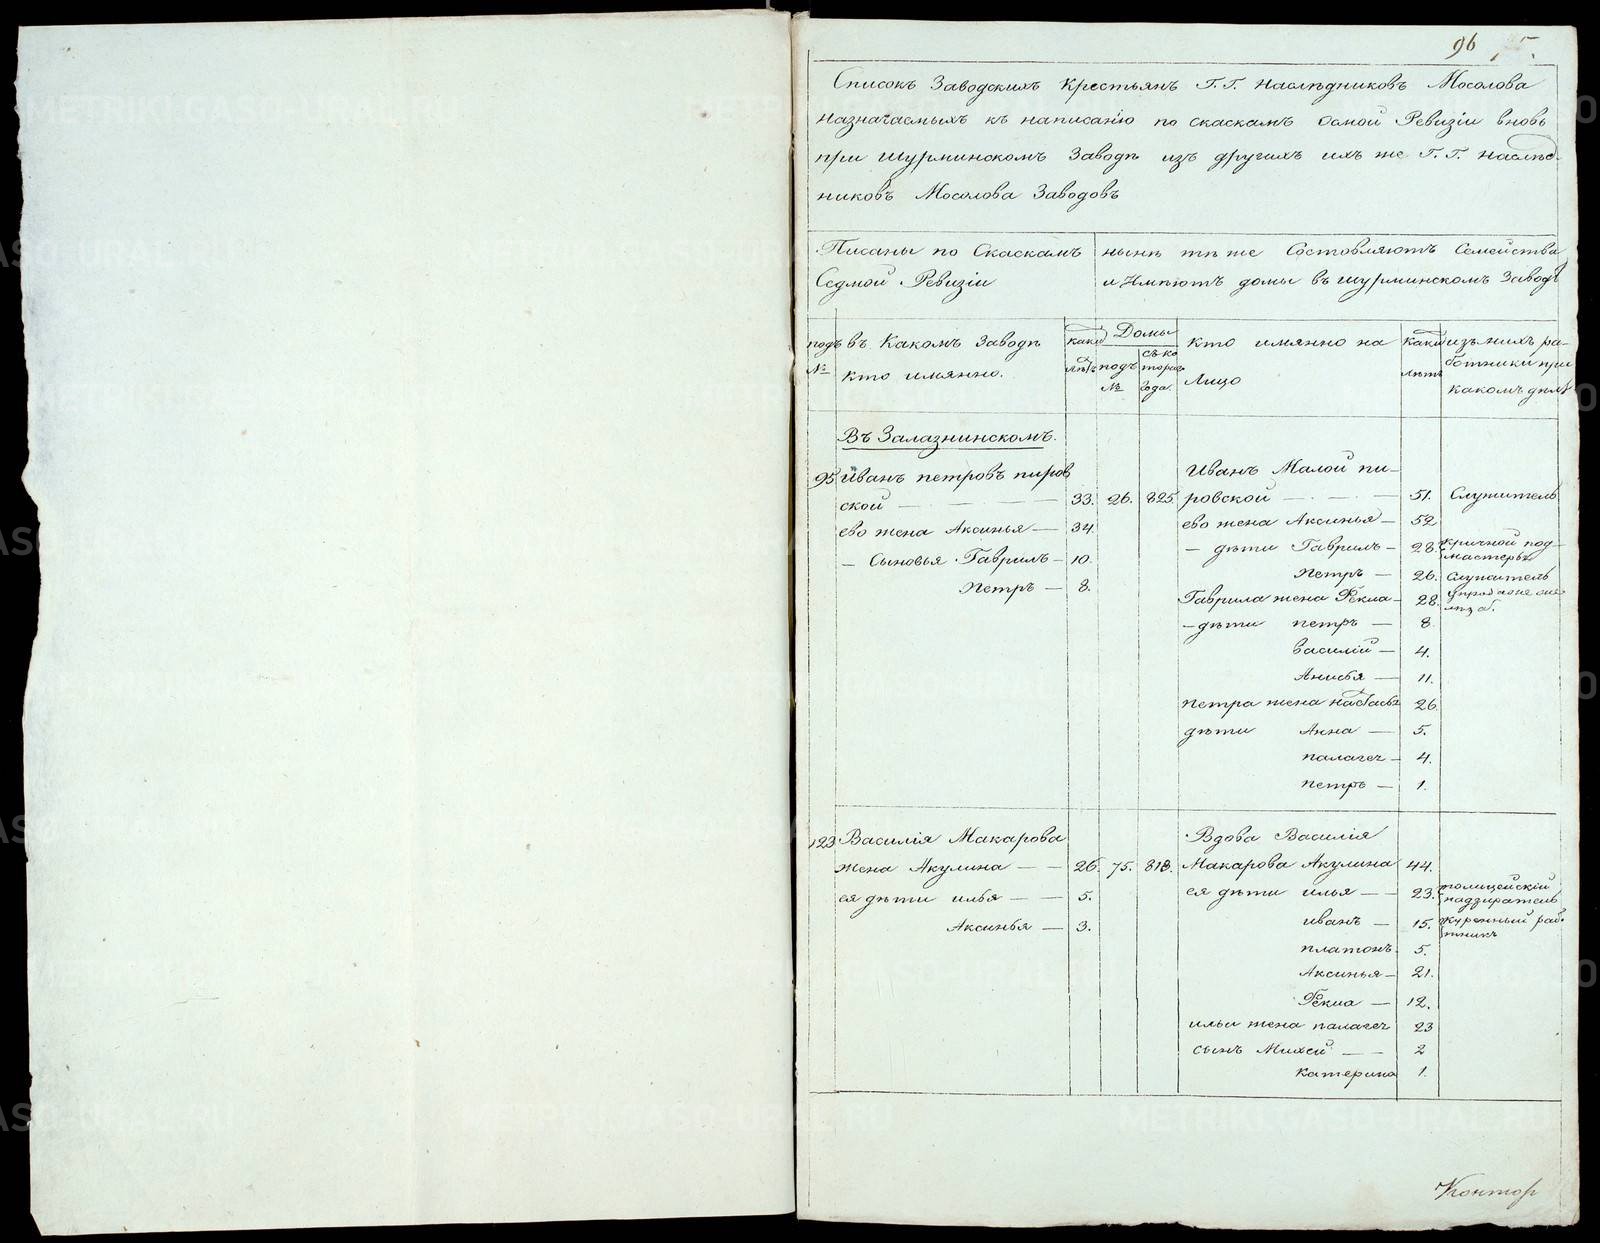 96
Списокъ Заводскихъ Крестьянъ Г.Г. Наслѣдниковъ Мосолова
назначаемыхъ къ написанію по скаскамъ осмой Ревизіи вновь
при Шурминскомъ Заводѣ изъ другихъ ихъ же Г.Г. Наслѣд-
никовъ Мосолова Заводовъ
Писаны по Скаскамъ
Седмой Ревизіи
нынѣ тѣ же Состовляютъ Семейства
и Имѣютъ домы въ Шурминскомъ Заводѣ
подъ №
въ Какомъ Заводѣ
кто имянно.
лѣтъ
Домы
подъ №
съ ко
тораго
года.
кто имянно на
Лицо
лѣтъ
изъ нихъ ра-
ботники при
какомъ дѣлѣ
Въ Залазнинскомъ.
95 Иванъ петровъ пиров
ской — 33. 26. 825. Иванъ Малой пи-
ровской — 51. Служитель
ево жена Аксинья — 34.
ево жена Аксинья — 52
— Сыновья Гаврилъ — 10.
— дѣти Гаврилъ — 28. кричной под-
мастерье
Петръ — 8.
Петръ — 26. Служитель
Гаврила жена Фекла — 28.
— дѣти петръ — 8.
василій — 4.
Анисья — 11.
петра жена настасья 26.
дѣти Анна — 5.
палагея — 4.
петръ — 1.
123 Василія Макарова
жена Акулина — 26. 75. 818.
Вдова Василія
Макарова Акулина 44.
ея дѣти илья — 5.
ея дѣти илья — 23. полицейскій
надзиратель
Аксинья — 3.
иванъ — 15. куренный рабо-
тникъ
платонъ 5.
Аксинья — 21.
Фекла — 12.
ильи жена палагея 23
сынъ Михей — 2
катерина 1.
Контор
METRIKI.GASO-URAL.RU